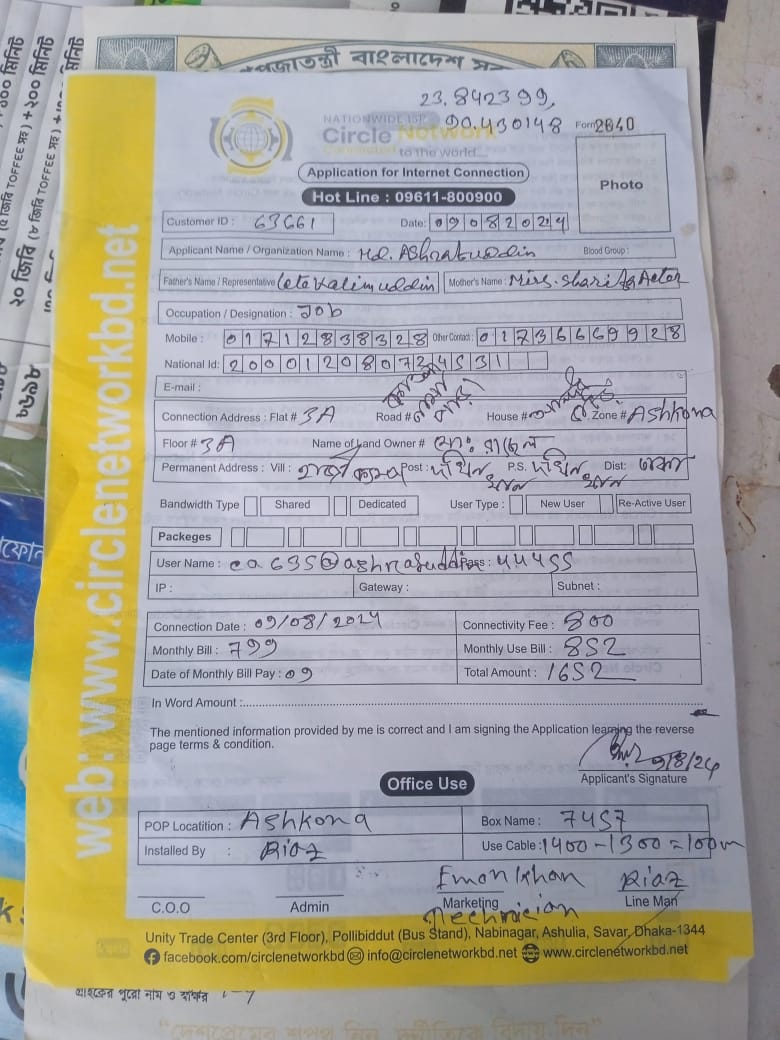 ২০ জিবি (৮ জিবি TOFFEE সহ) + ২০০ মিনিট
বাংলাদেশ
23.842399,
90.430148
NATIONWIDE ISP
Circle Network
Connected to the world...
Form 2640
Application for Internet Connection
Photo
Hot Line : 09611-800900
Customer ID : 63661 Date: 09082024
Applicant Name / Organization Name : Md. Ashrafuddin Blood Group :
Father's Name / Representative Late Kalimuddin Mother's Name : Miss. Sharifa Acter
Occupation / Designation : Job
Mobile : 01712838328 Other Contact : 01736669928
National Id: 200012080734531
E-mail :
Connection Address : Flat # 3A Road # House # Zone # Ashkona
Floor # 3A Name of Land Owner # মোঃ রাসেল
Permanent Address : Vill : Post : দক্ষিন খান P.S. দক্ষিন খান Dist: ঢাকা
Bandwidth Type Shared Dedicated User Type : New User Re-Active User
Packeges
User Name : ca635@ashrafuddin Pass : 44455
IP : Gateway : Subnet :
Connection Date : 09/08/2024 Connectivity Fee : 800
Monthly Bill : 799 Monthly Use Bill : 852
Date of Monthly Bill Pay : 09 Total Amount : 1652
In Word Amount :
The mentioned information provided by me is correct and I am signing the Application learning the reverse
page terms & condition.
9/8/24
Applicant's Signature
Office Use
POP Locatition : Ashkona Box Name : 7457
Installed By : Riaz Use Cable : 1400-1300=100m
Emon Khan Riaz
C.O.O Admin Marketing Line Man
Technician
Unity Trade Center (3rd Floor), Pollibiddut (Bus Stand), Nabinagar, Ashulia, Savar, Dhaka-1344
facebook.com/circlenetworkbd info@circlenetworkbd.net www.circlenetworkbd.net
web: www.circlenetworkbd.net
গ্রাহকের পুরো নাম ও স্বাক্ষর
"দেশপ্রেমের শপথ নিন, দুর্নীতিকে বিদায় দিন"